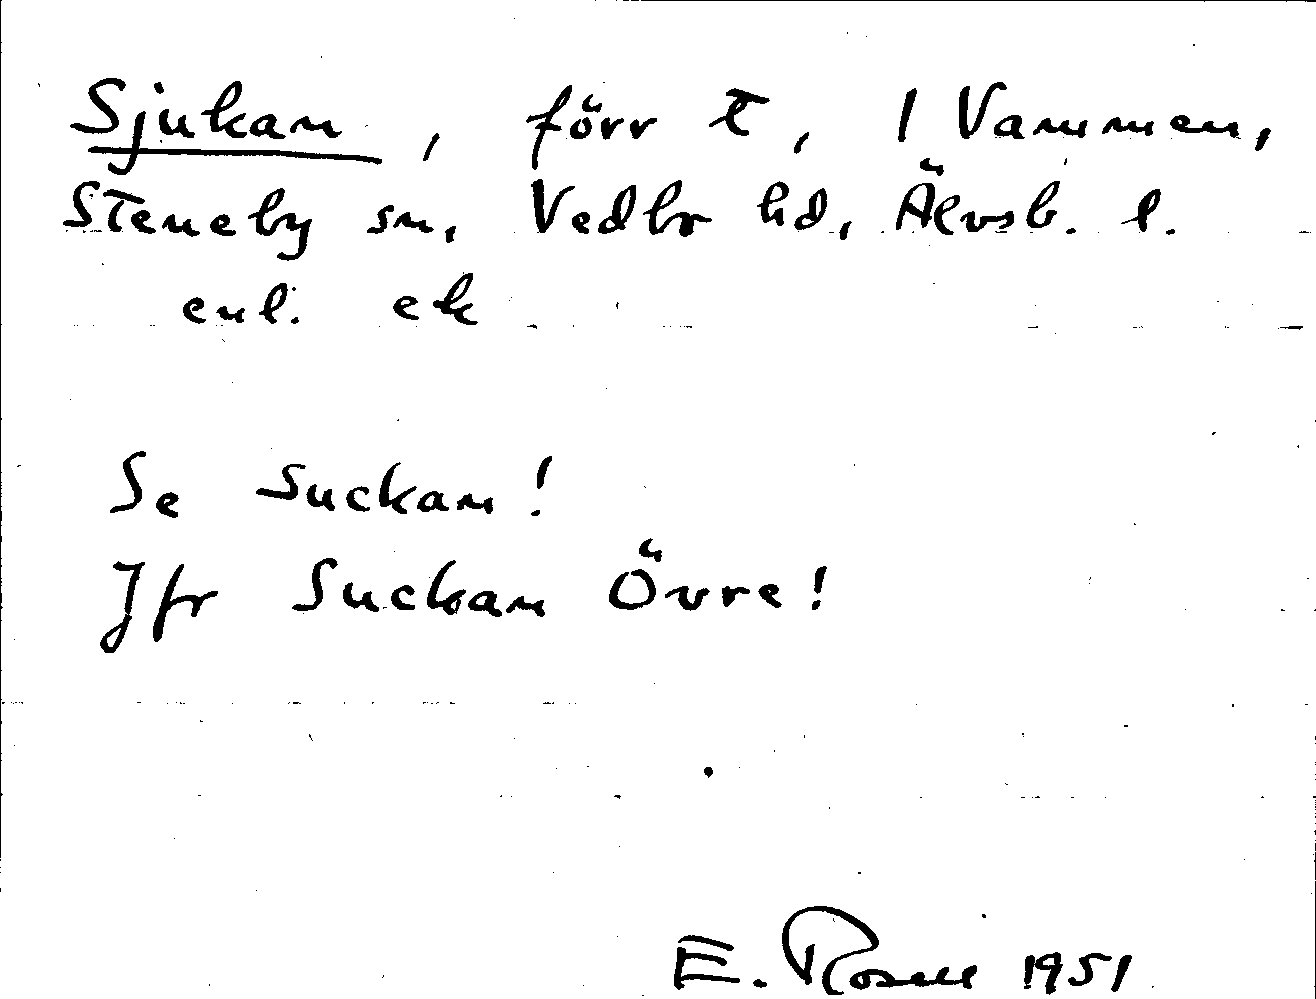 Sjukan, förr t, 1 Vammen,
Steneby sn, Vedbo hd, Älvsb. l.
enl. ek
Se Suckan!
Jfr Suckan Övre!
E. Rosell 1951